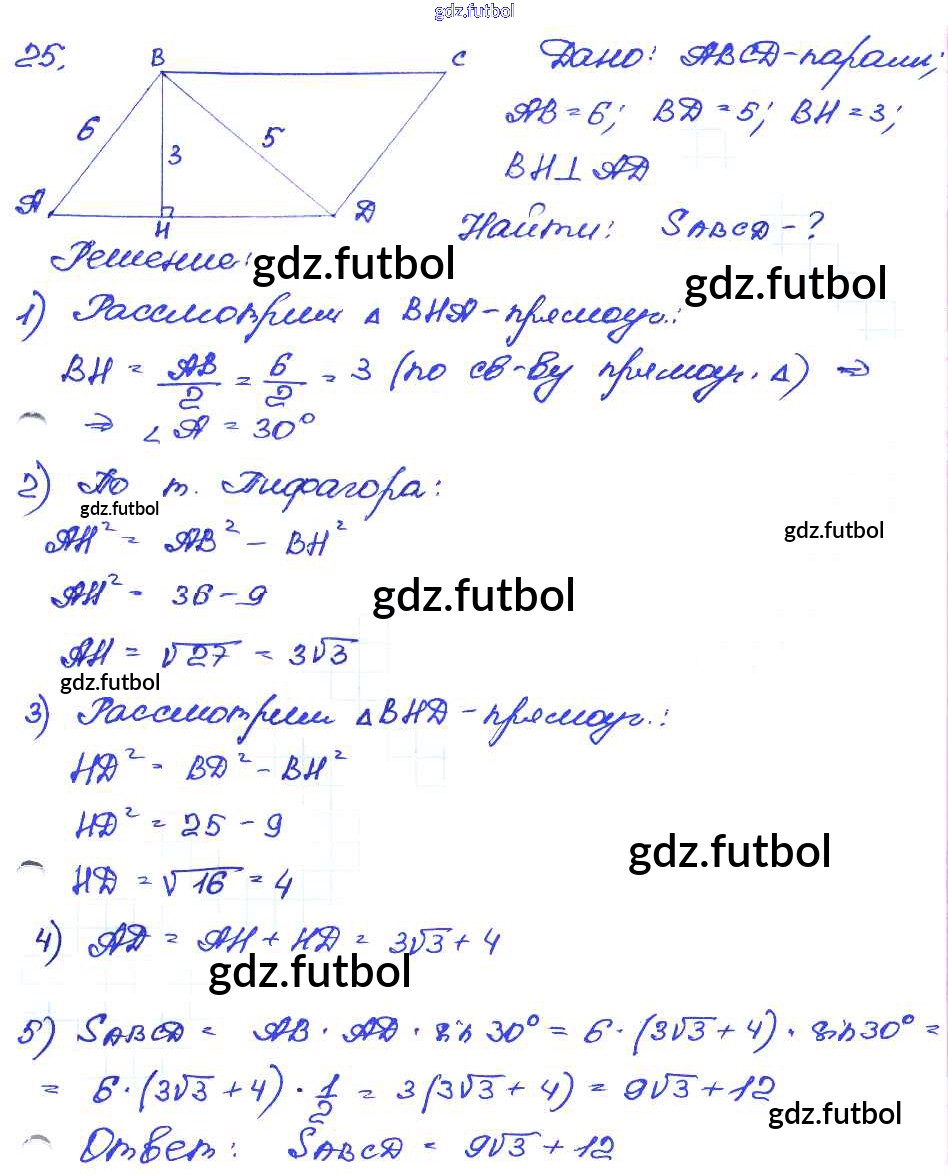 gdz.futbol
25.
B
C
6
3
5
A
H
D
Дано: ABCD-парал.;
AB = 6; BD = 5; BH = 3;
BH ⊥ AD
Найти: SABCD - ?
Решение:
gdz.futbol
gdz.futbol
1) Рассмотрим △ BHA - прямоуг.:
BH = AB/2 = 6/2 = 3 (по св-ву прямоуг. △) ⇒
⇒ ∠A = 30°
2) По т. Пифагора:
gdz.futbol
AH² = AB² - BH²
gdz.futbol
AH² = 36 - 9
gdz.futbol
AH = √27 = 3√3
gdz.futbol
3) Рассмотрим △BHD - прямоуг.:
HD² = BD² - BH²
HD² = 25 - 9
gdz.futbol
HD = √16 = 4
4) AD = AH + HD = 3√3 + 4
gdz.futbol
5) SABCD = AB · AD · sin 30° = 6 · (3√3 + 4) · sin 30° =
= 6 · (3√3 + 4) · 1/2 = 3(3√3 + 4) = 9√3 + 12
gdz.futbol
Ответ: SABCD = 9√3 + 12